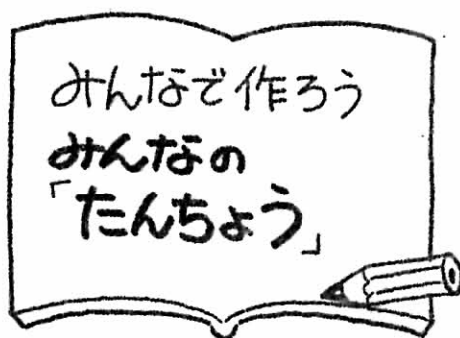 みんなで作ろう
みんなの
「たんちょう」